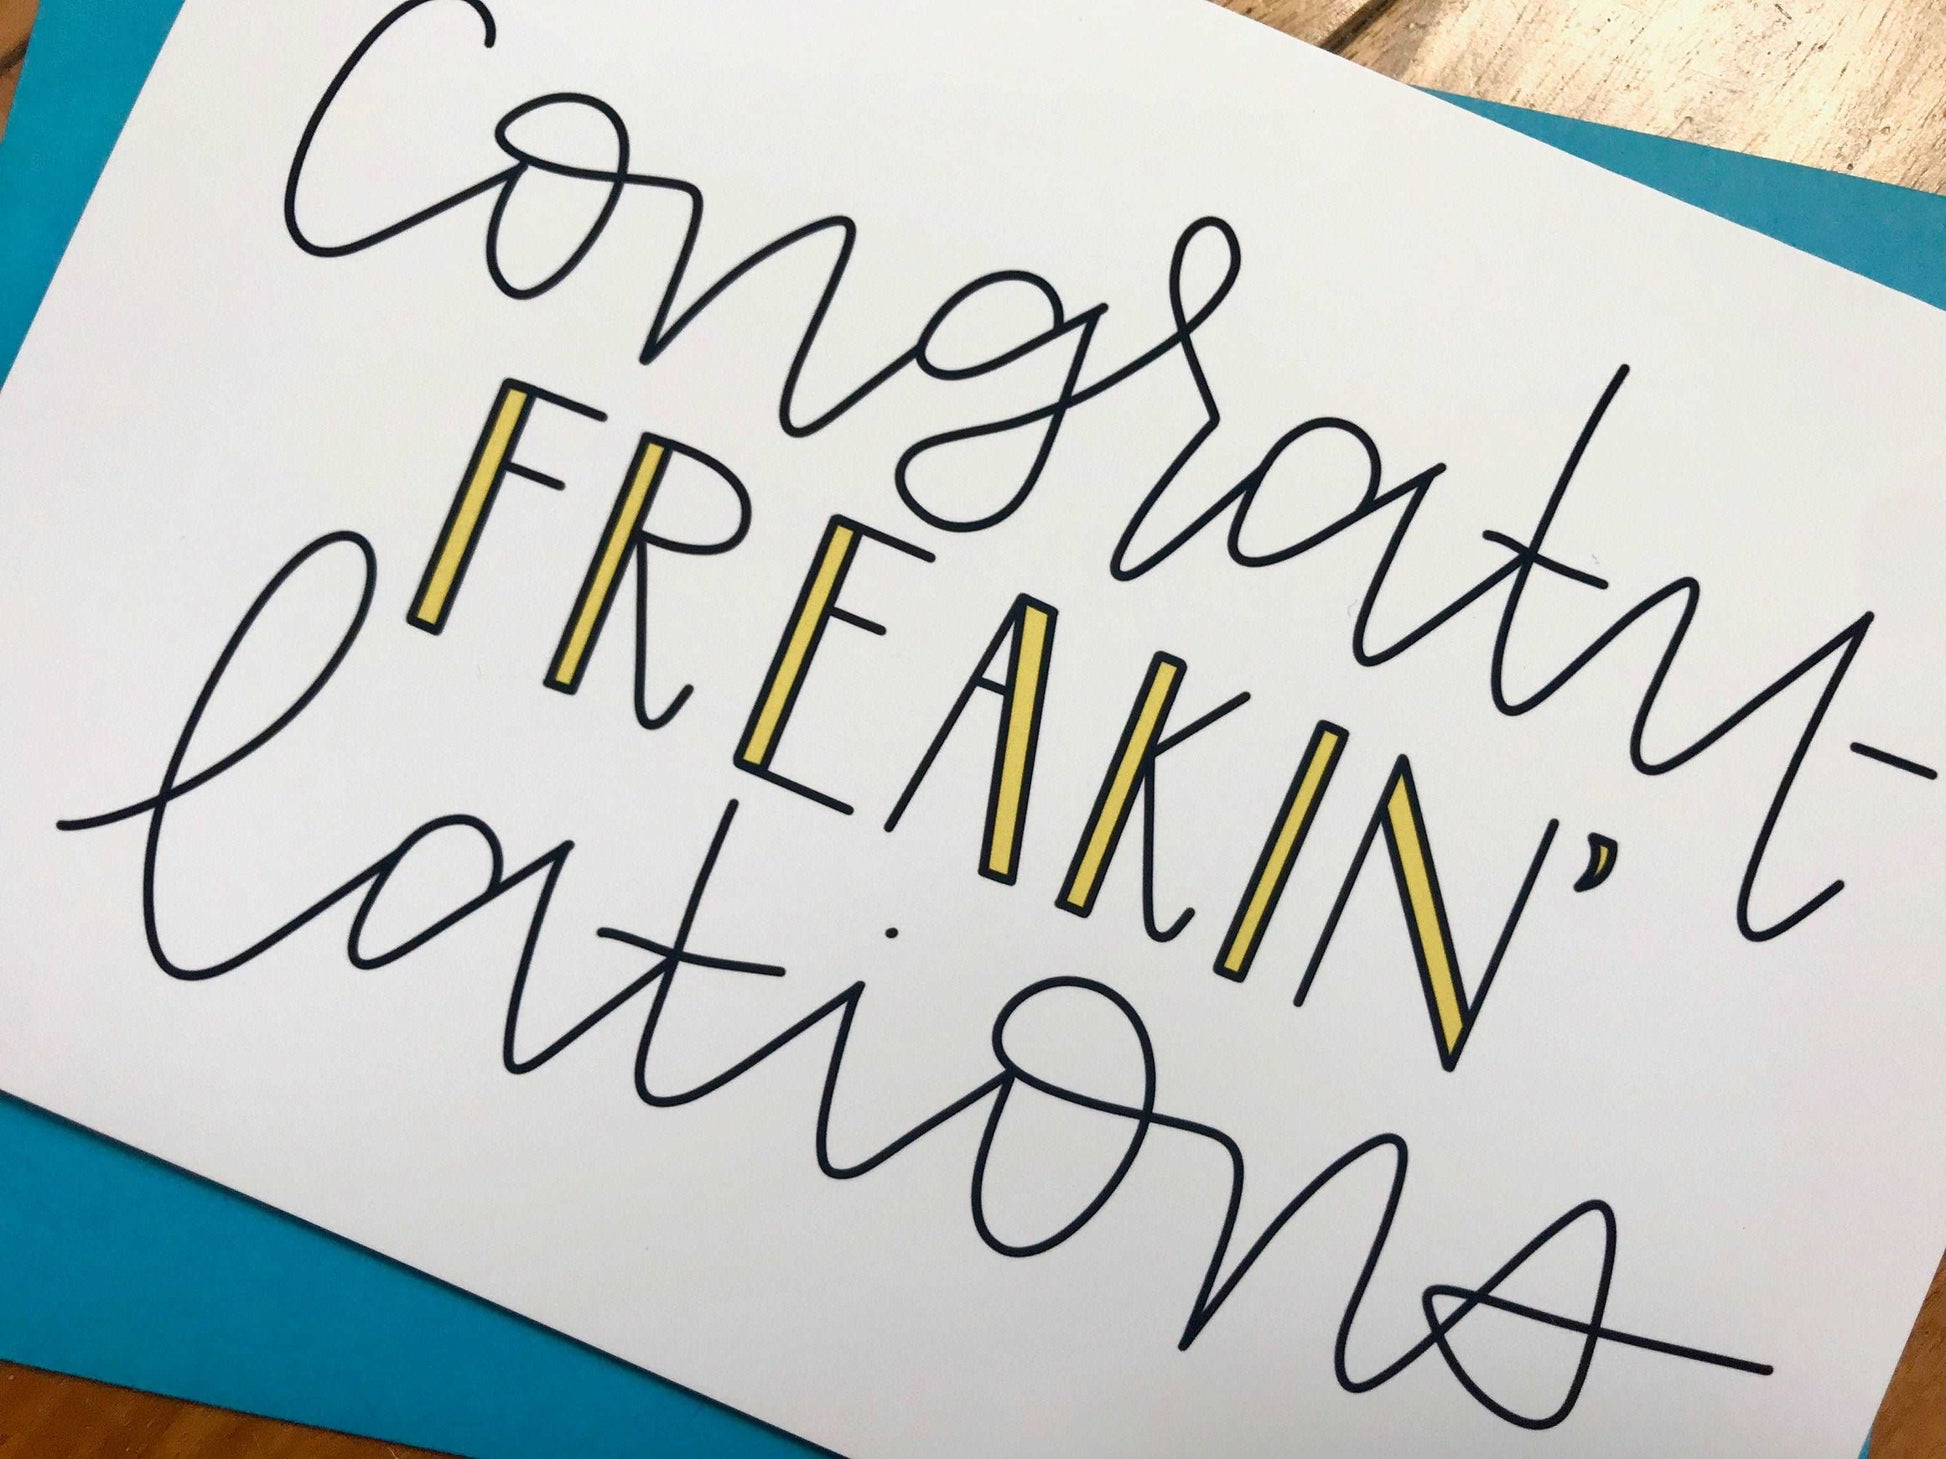 Congratu-
FREAKIN'
lations